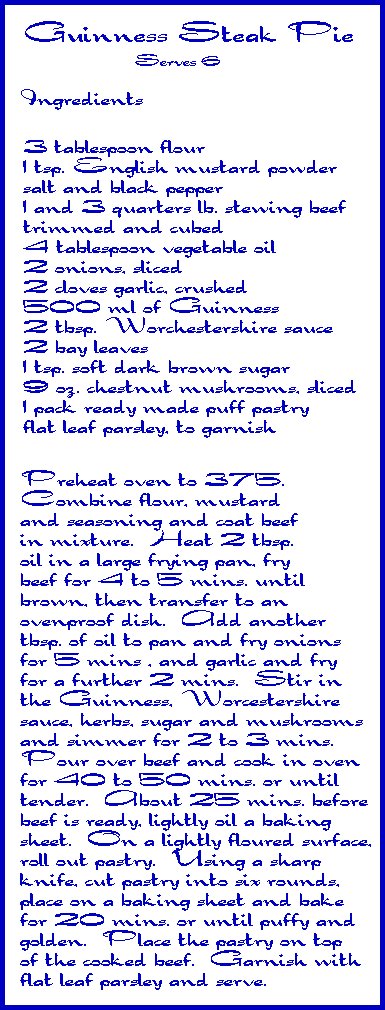 Guinness Steak Pie
Serves 6
Ingredients
3 tablespoon flour
1 tsp. English mustard powder
salt and black pepper
1 and 3 quarters lb. stewing beef
trimmed and cubed
4 tablespoon vegetable oil
2 onions, sliced
2 cloves garlic, crushed
500 ml of Guinness
2 tbsp. Worchestershire sauce
2 bay leaves
1 tsp. soft dark brown sugar
9 oz. chestnut mushrooms, sliced
1 pack ready made puff pastry
flat leaf parsley, to garnish
Preheat oven to 375.
Combine flour, mustard
and seasoning and coat beef
in mixture. Heat 2 tbsp.
oil in a large frying pan, fry
beef for 4 to 5 mins. until
brown, then transfer to an
ovenproof dish. Add another
tbsp. of oil to pan and fry onions
for 5 mins , and garlic and fry
for a further 2 mins. Stir in
the Guinness, Worcestershire
sauce, herbs, sugar and mushrooms
and simmer for 2 to 3 mins.
Pour over beef and cook in oven
for 40 to 50 mins. or until
tender. About 25 mins. before
beef is ready, lightly oil a baking
sheet. On a lightly floured surface,
roll out pastry. Using a sharp
knife, cut pastry into six rounds,
place on a baking sheet and bake
for 20 mins. or until puffy and
golden. Place the pastry on top
of the cooked beef. Garnish with
flat leaf parsley and serve.